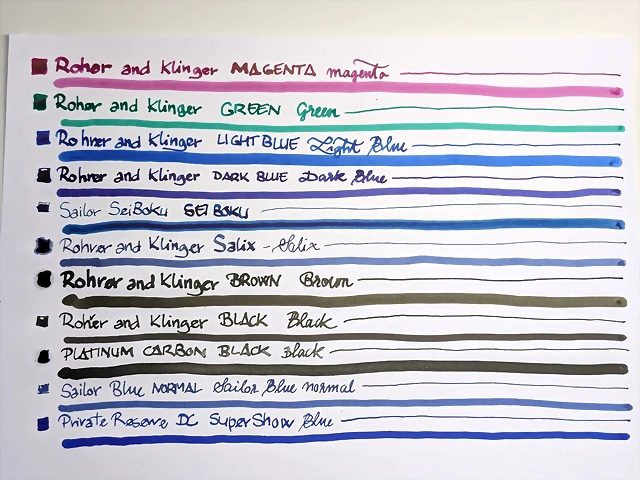 Rohrer and Klinger MAGENTA magenta
Rohrer and Klinger GREEN Green
Rohrer and Klinger LIGHT BLUE Light Blue
Rohrer and Klinger DARK BLUE Dark Blue
Sailor SeiBoku SEIBOKU
Rohrer and Klinger Salix - Salix
Rohrer and Klinger BROWN Brown
Rohrer and Klinger BLACK Black
PLATINUM CARBON BLACK Black
Sailor Blue NORMAL Sailor Blue normal
Private Reserve DC SuperShow Blue